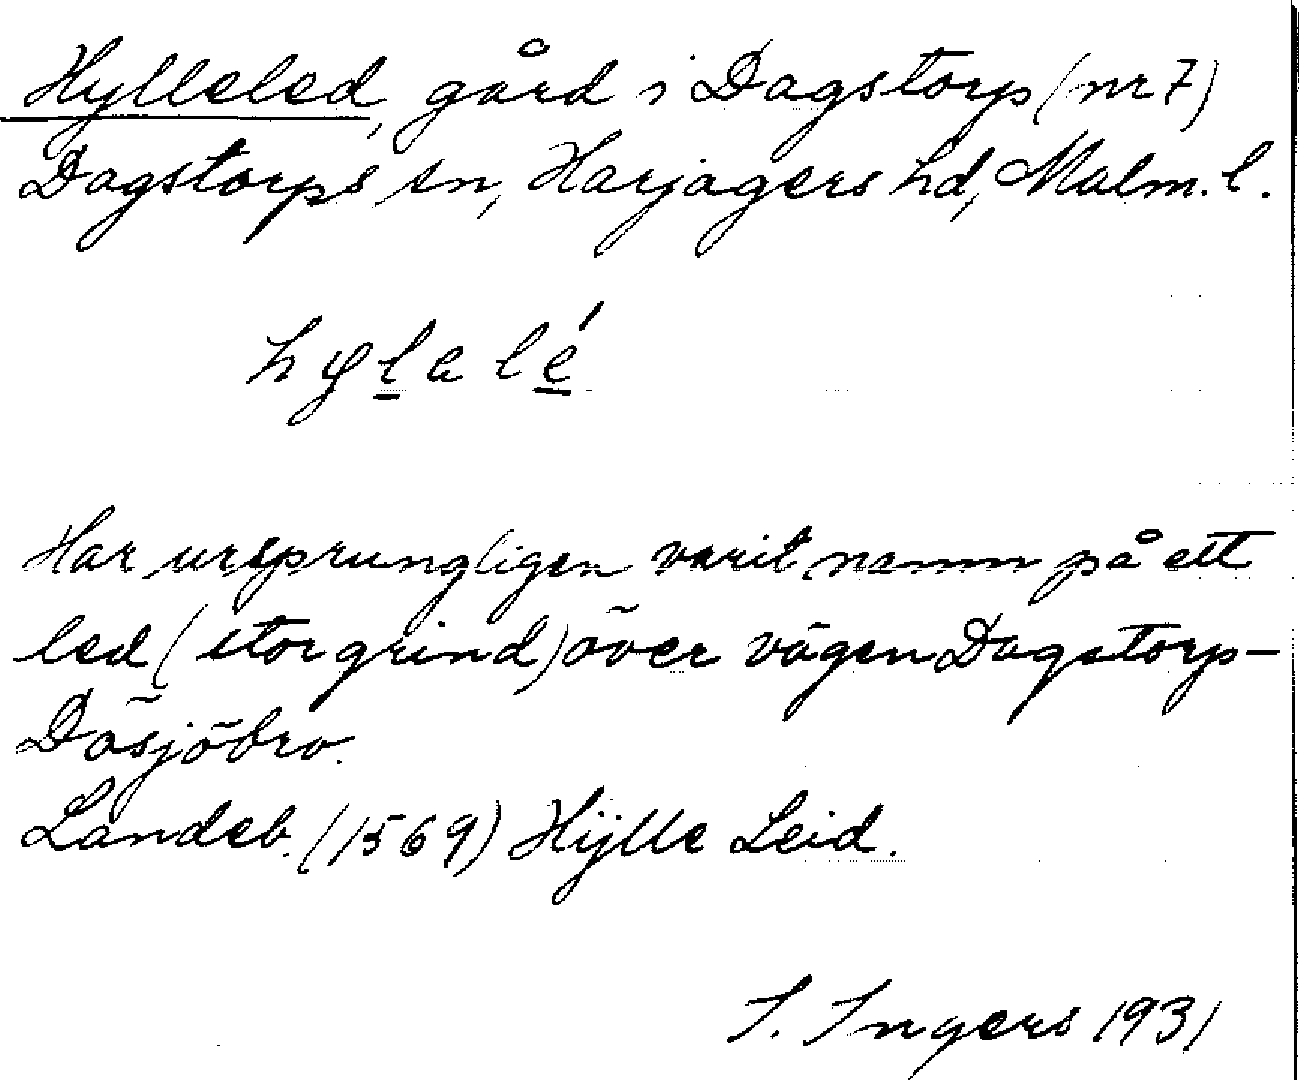 Hylleled, gård i Dagstorp (nr 7)
Dagstorps sn, Harjagers hd, Malm. l.
hylalé
Har ursprungligen varit namn på ett
led (stor grind) över vägen Dagstorp-
Dösjöbro.
Landeb. (1569) Hÿlle Leid.
I. Ingers 1931